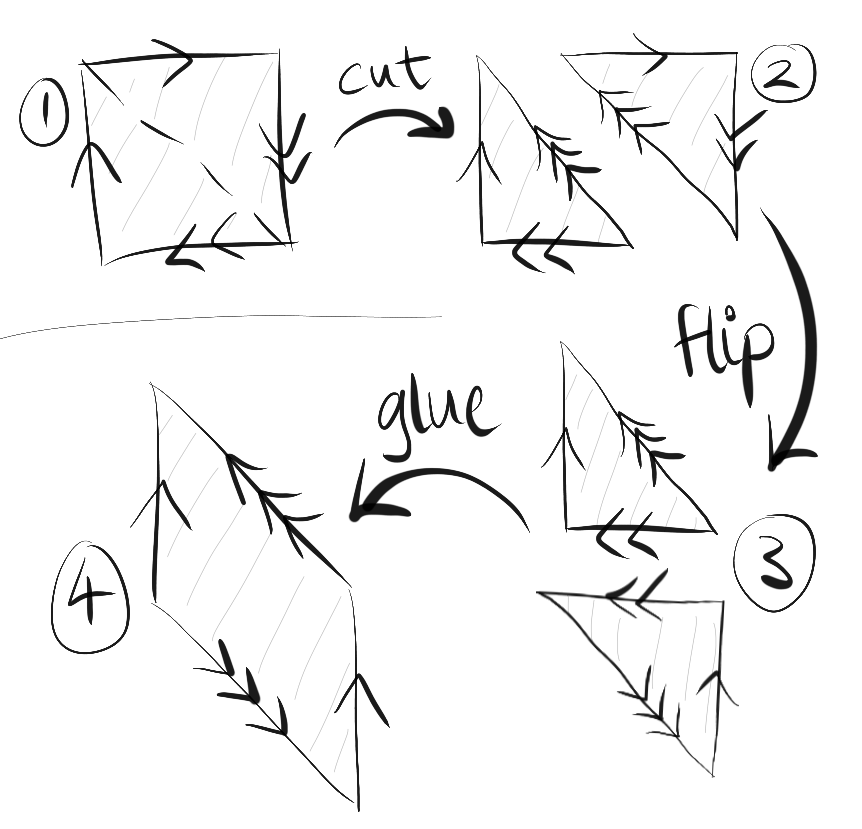 1
cut
2
flip
glue
3
4